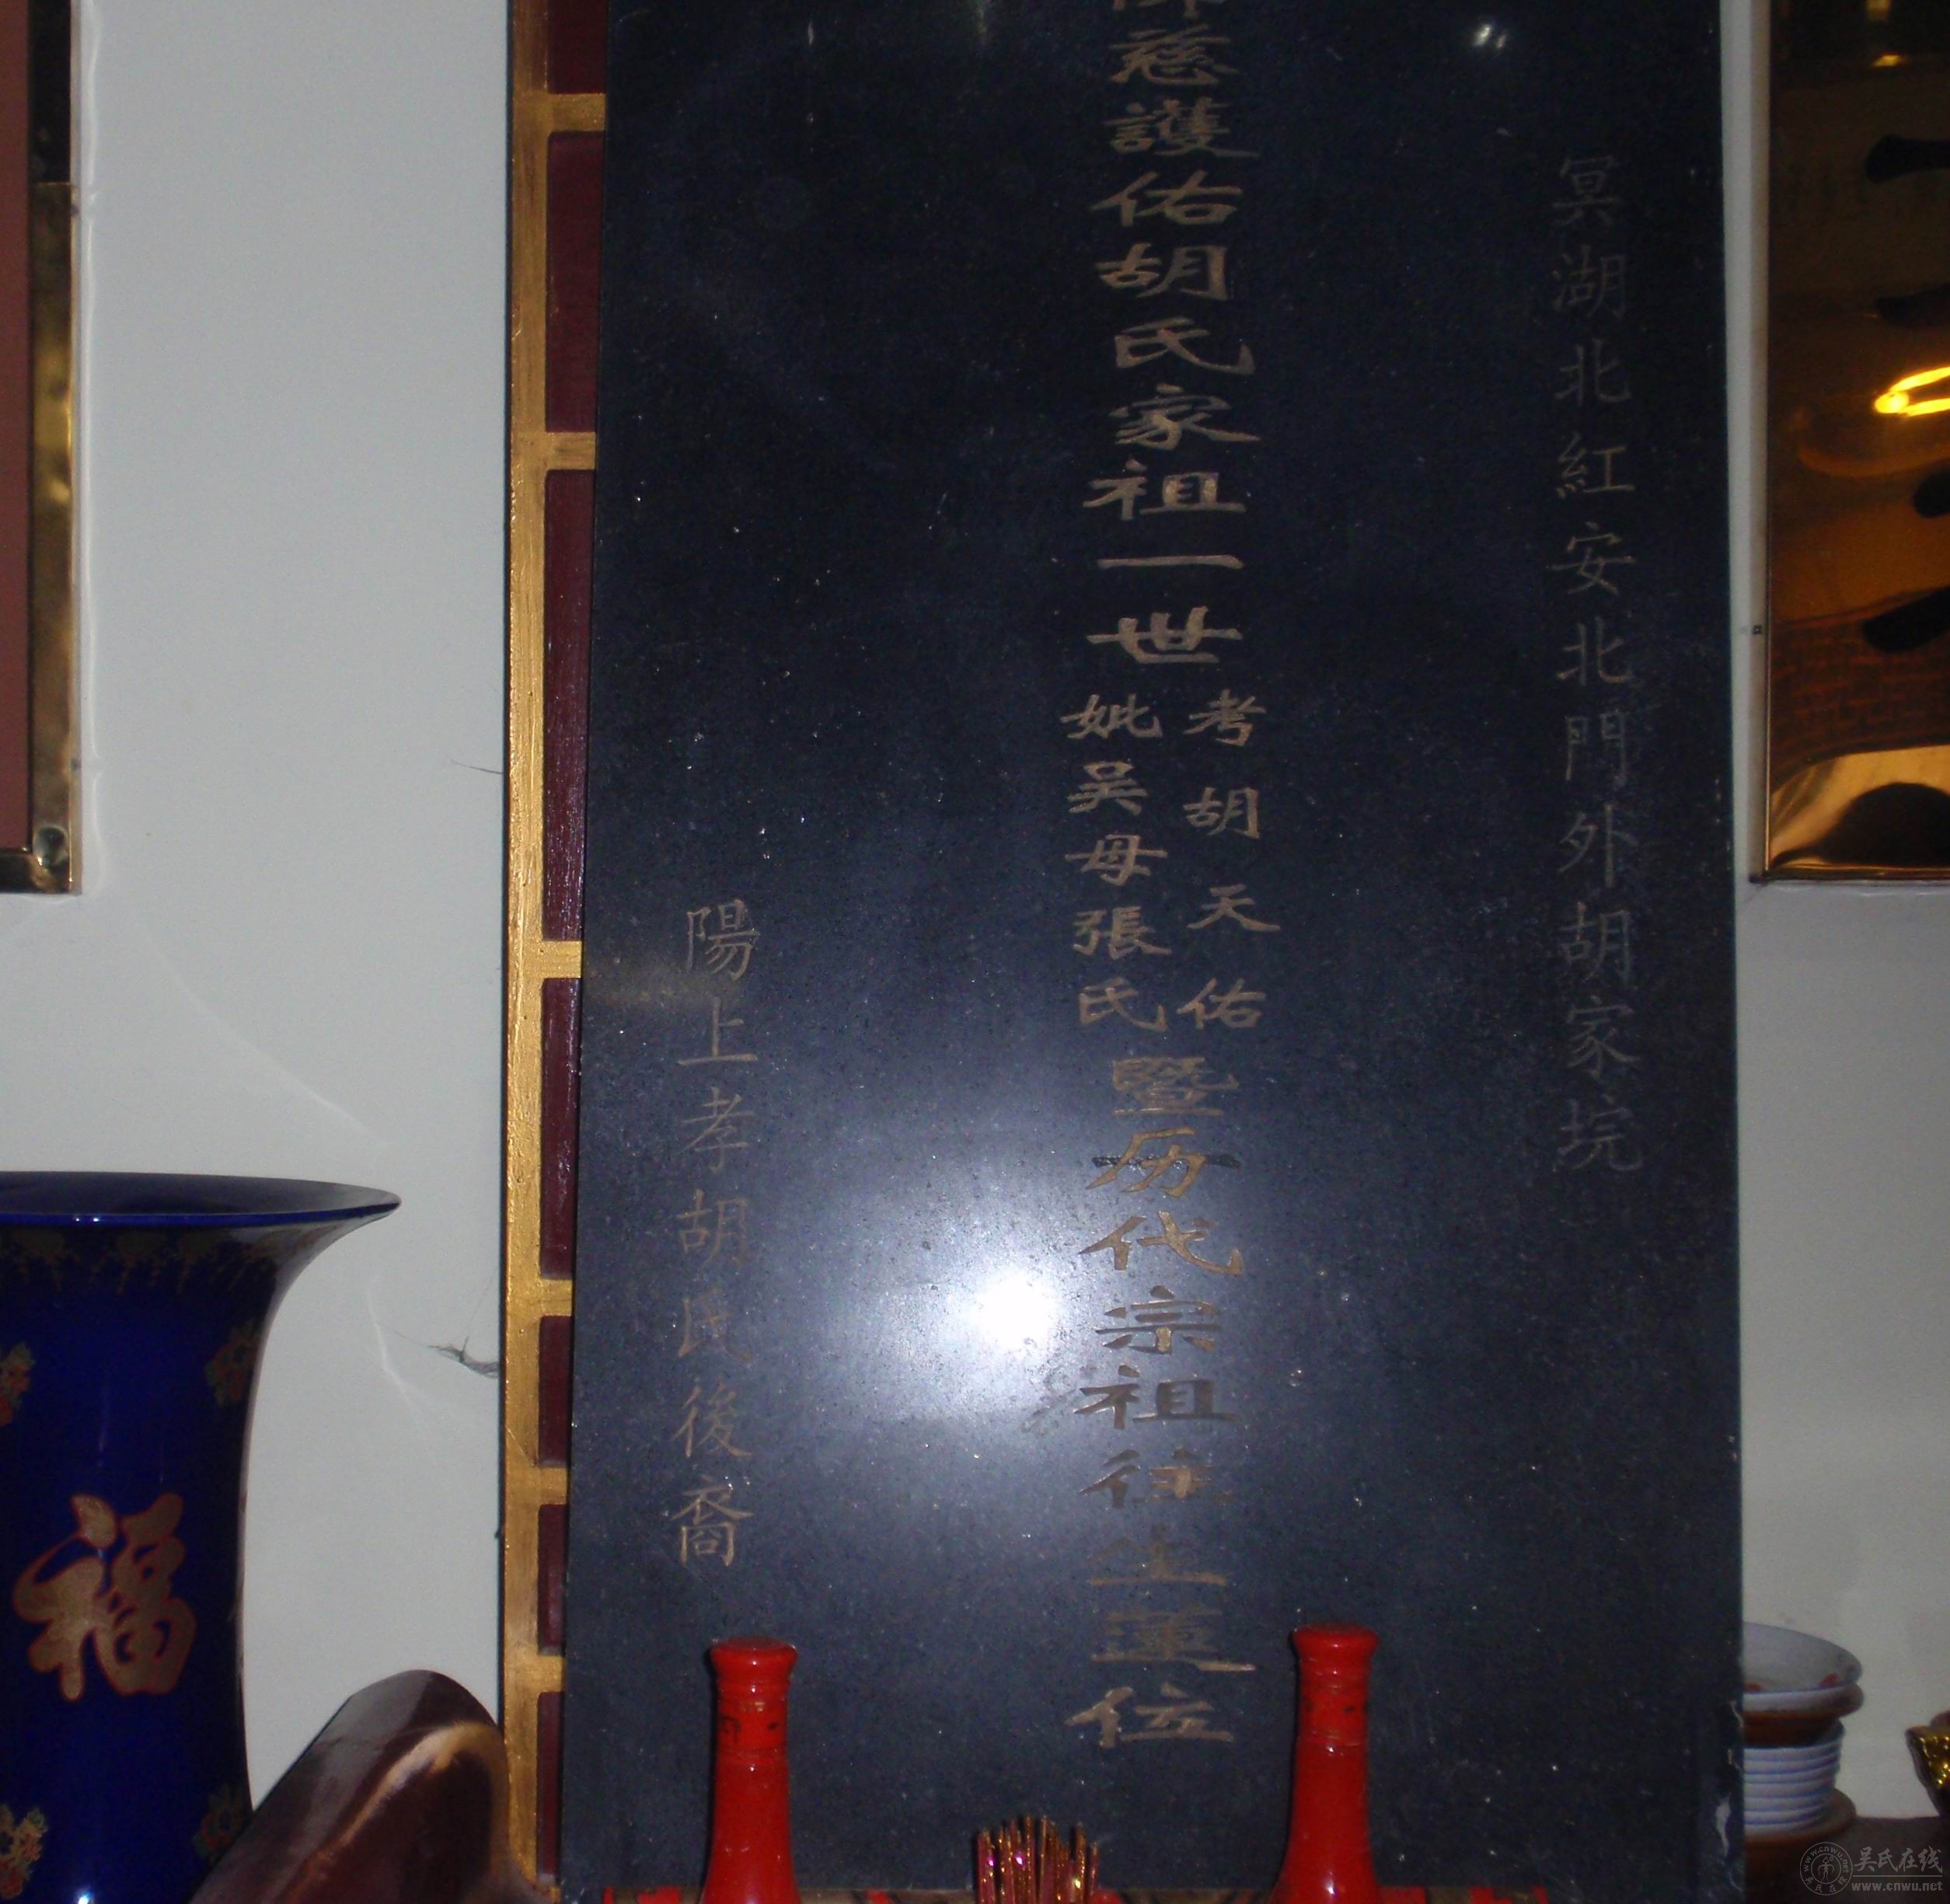 冥湖北紅安北門外胡家垸
慈護佑胡氏家祖一世
考胡天佑
妣吴母張氏
暨历代宗祖往生蓮位
陽上孝胡氏後裔
福
吴氏在线
www.cnwu.net